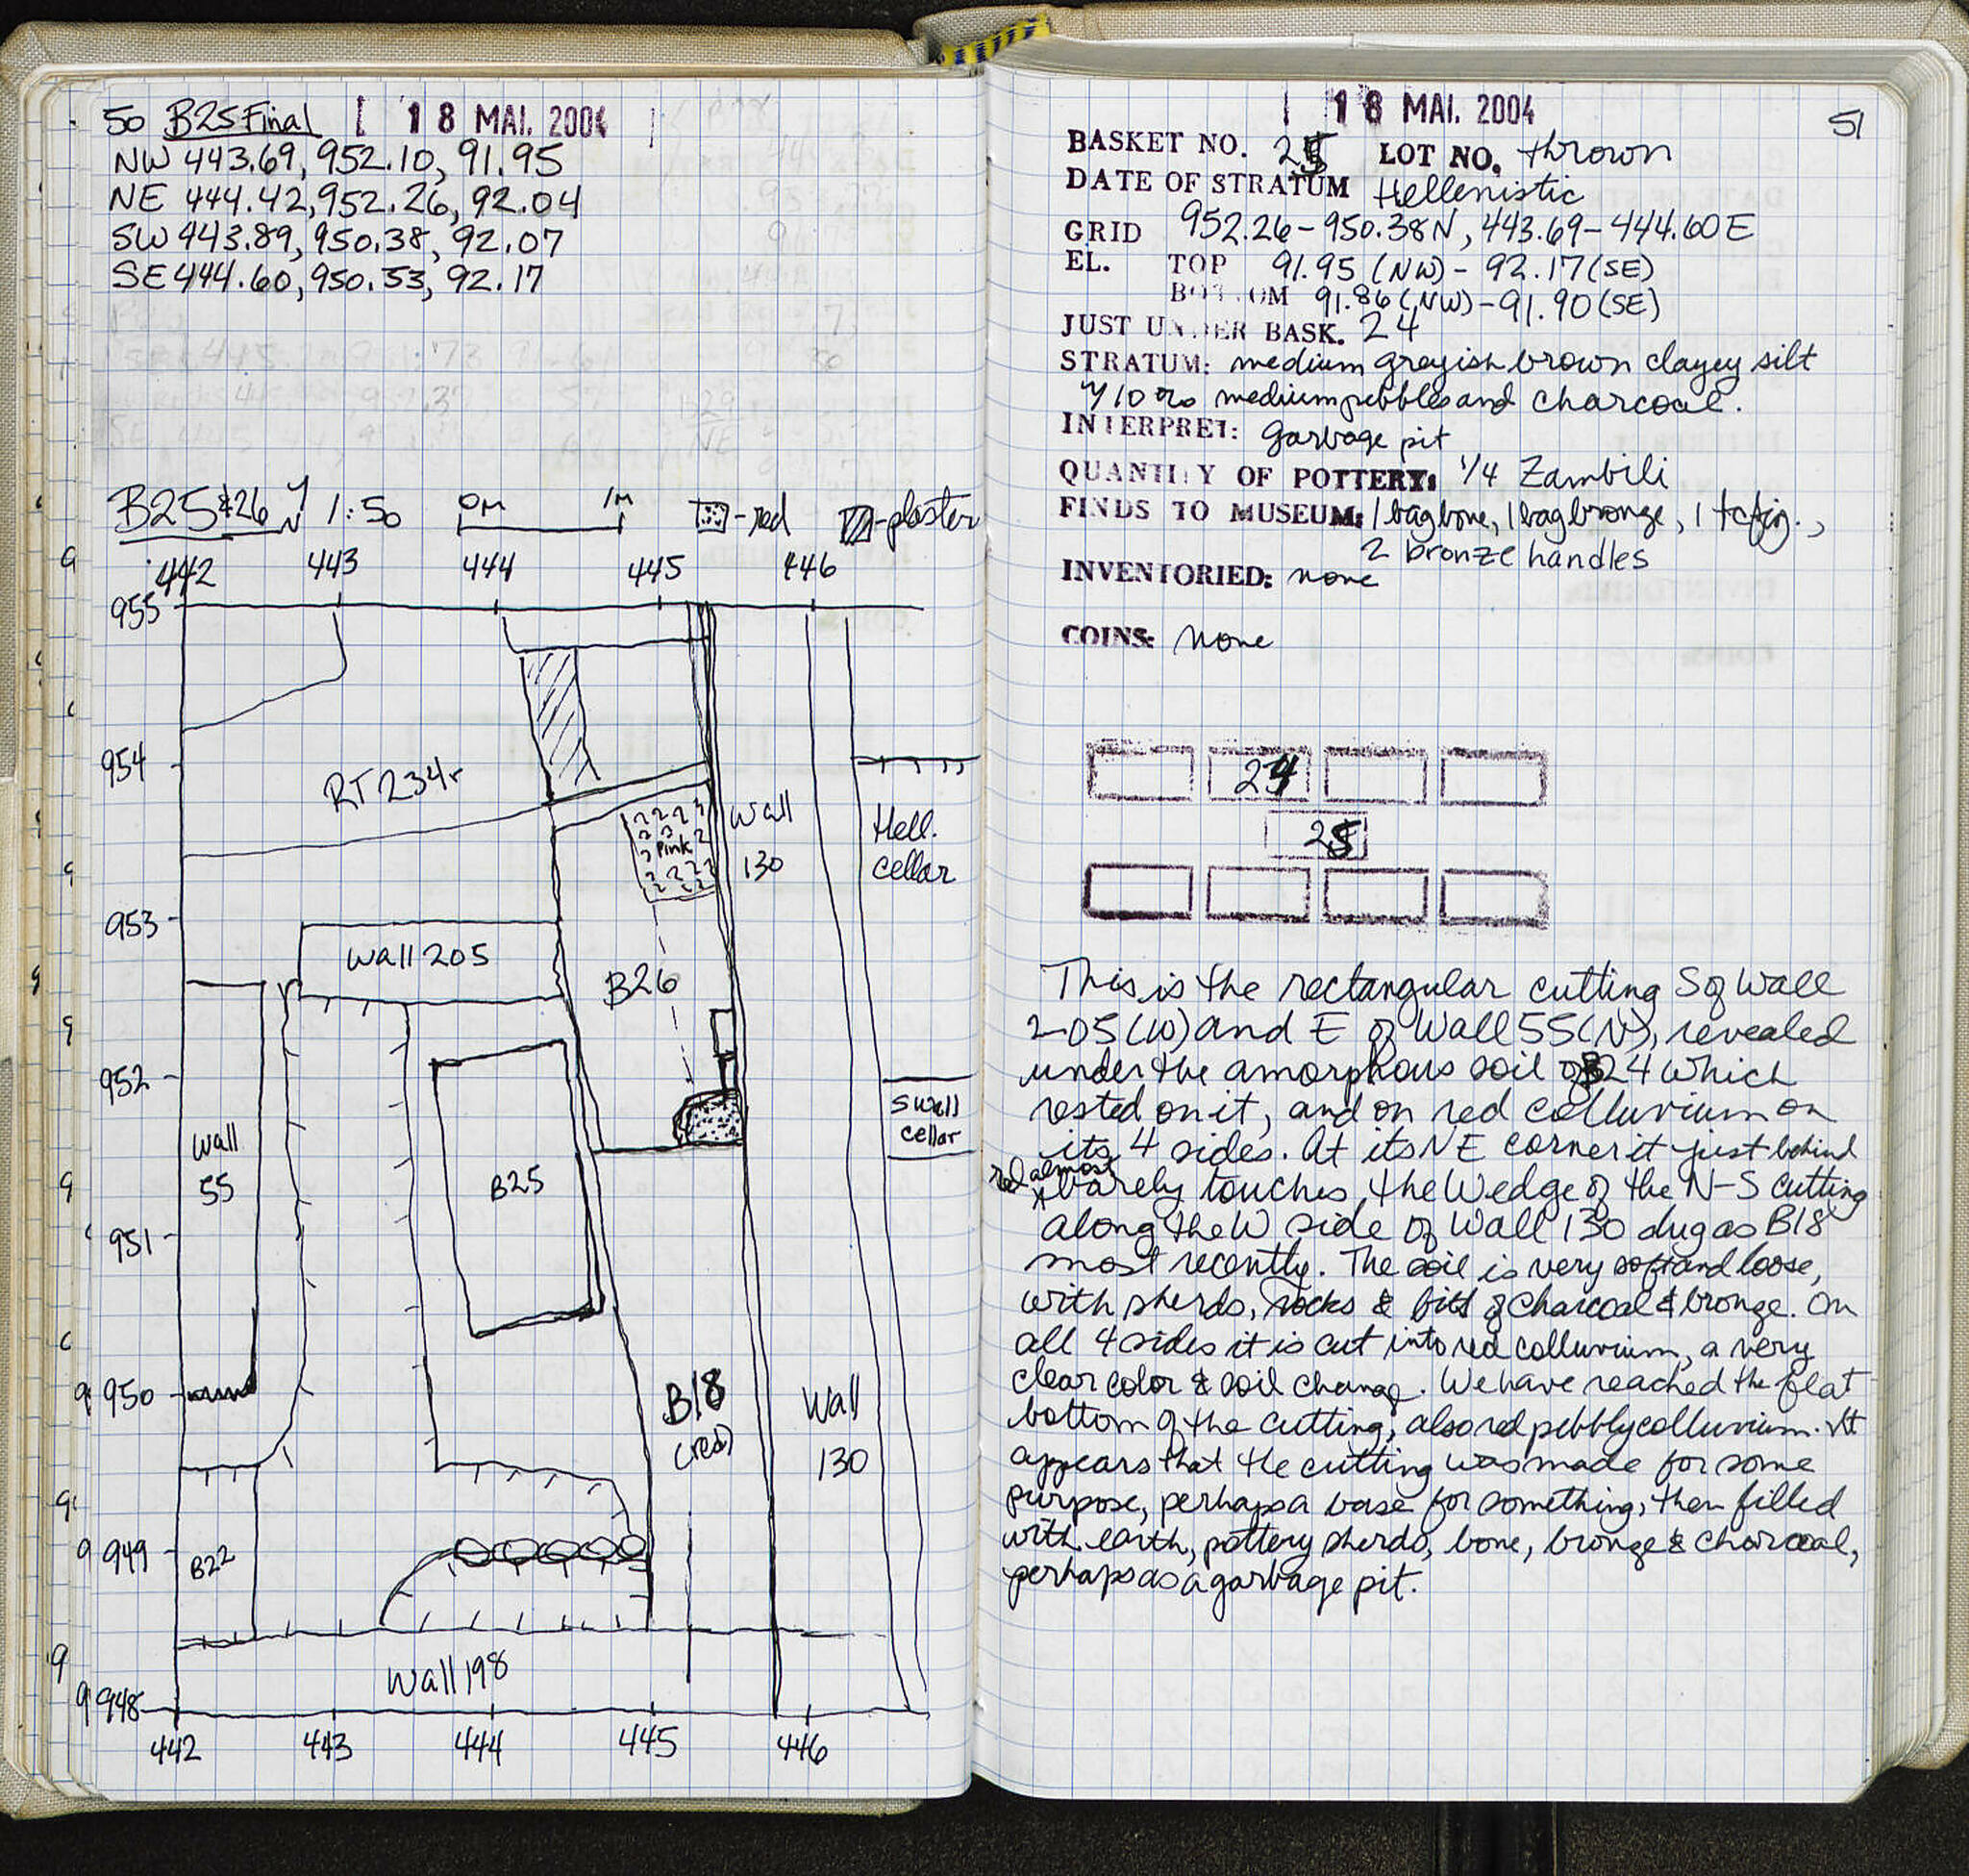 50 B25 Final 18 MAI. 2004
NW 443.69, 952.10, 91.95
NE 444.42, 952.26, 92.04
SW 443.89, 950.38, 92.07
SE 444.60, 950.53, 92.17
B25 & 26 N 1:50 0M 1M - red - plaster
442 443 444 445 446
955
954
RT 234r
Wall 130
pink
Hell. cellar
953
Wall 205
B26
952
small cellar
Wall 55
B25
951
950
B18 (red)
Wall 130
949
B22
Wall 198
948
442 443 444 445 446
18 MAI. 2004
51
BASKET NO. 25 LOT NO. thrown
DATE OF STRATUM Hellenistic
GRID 952.26-950.38N, 443.69-444.60E
EL. TOP 91.95 (NW) - 92.17 (SE)
BOTTOM 91.86 (NW) - 91.90 (SE)
JUST UNDER BASK. 24
STRATUM: medium greyish brown clayey silt
w/ 10% medium pebbles and charcoal.
INTERPRET: garbage pit
QUANTITY OF POTTERY: 1/4 Zambili
FINDS TO MUSEUM: 1 bag bone, 1 bag bronze, 1 tc fig.,
2 bronze handles
INVENTORIED: none
COINS: none
24
25
This is the rectangular cutting S of Wall
205 (W) and E of Wall 55 (N), revealed
under the amorphous soil of B24 which
rested on it, and on red colluvium on
its 4 sides. At its NE corner it just behind
red almost
barely touches the wedge of the N-S cutting
along the W side of Wall 130 dug as B18
most recently. The soil is very soft and loose,
with sherds, rocks & bits of charcoal & bronze. On
all 4 sides it is cut into red colluvium, a very
clear color & soil change. We have reached the flat
bottom of the cutting, also red pebbly colluvium. It
appears that the cutting was made for some
purpose, perhaps a base for something, then filled
with earth, pottery sherds, bone, bronze & charcoal,
perhaps as a garbage pit.